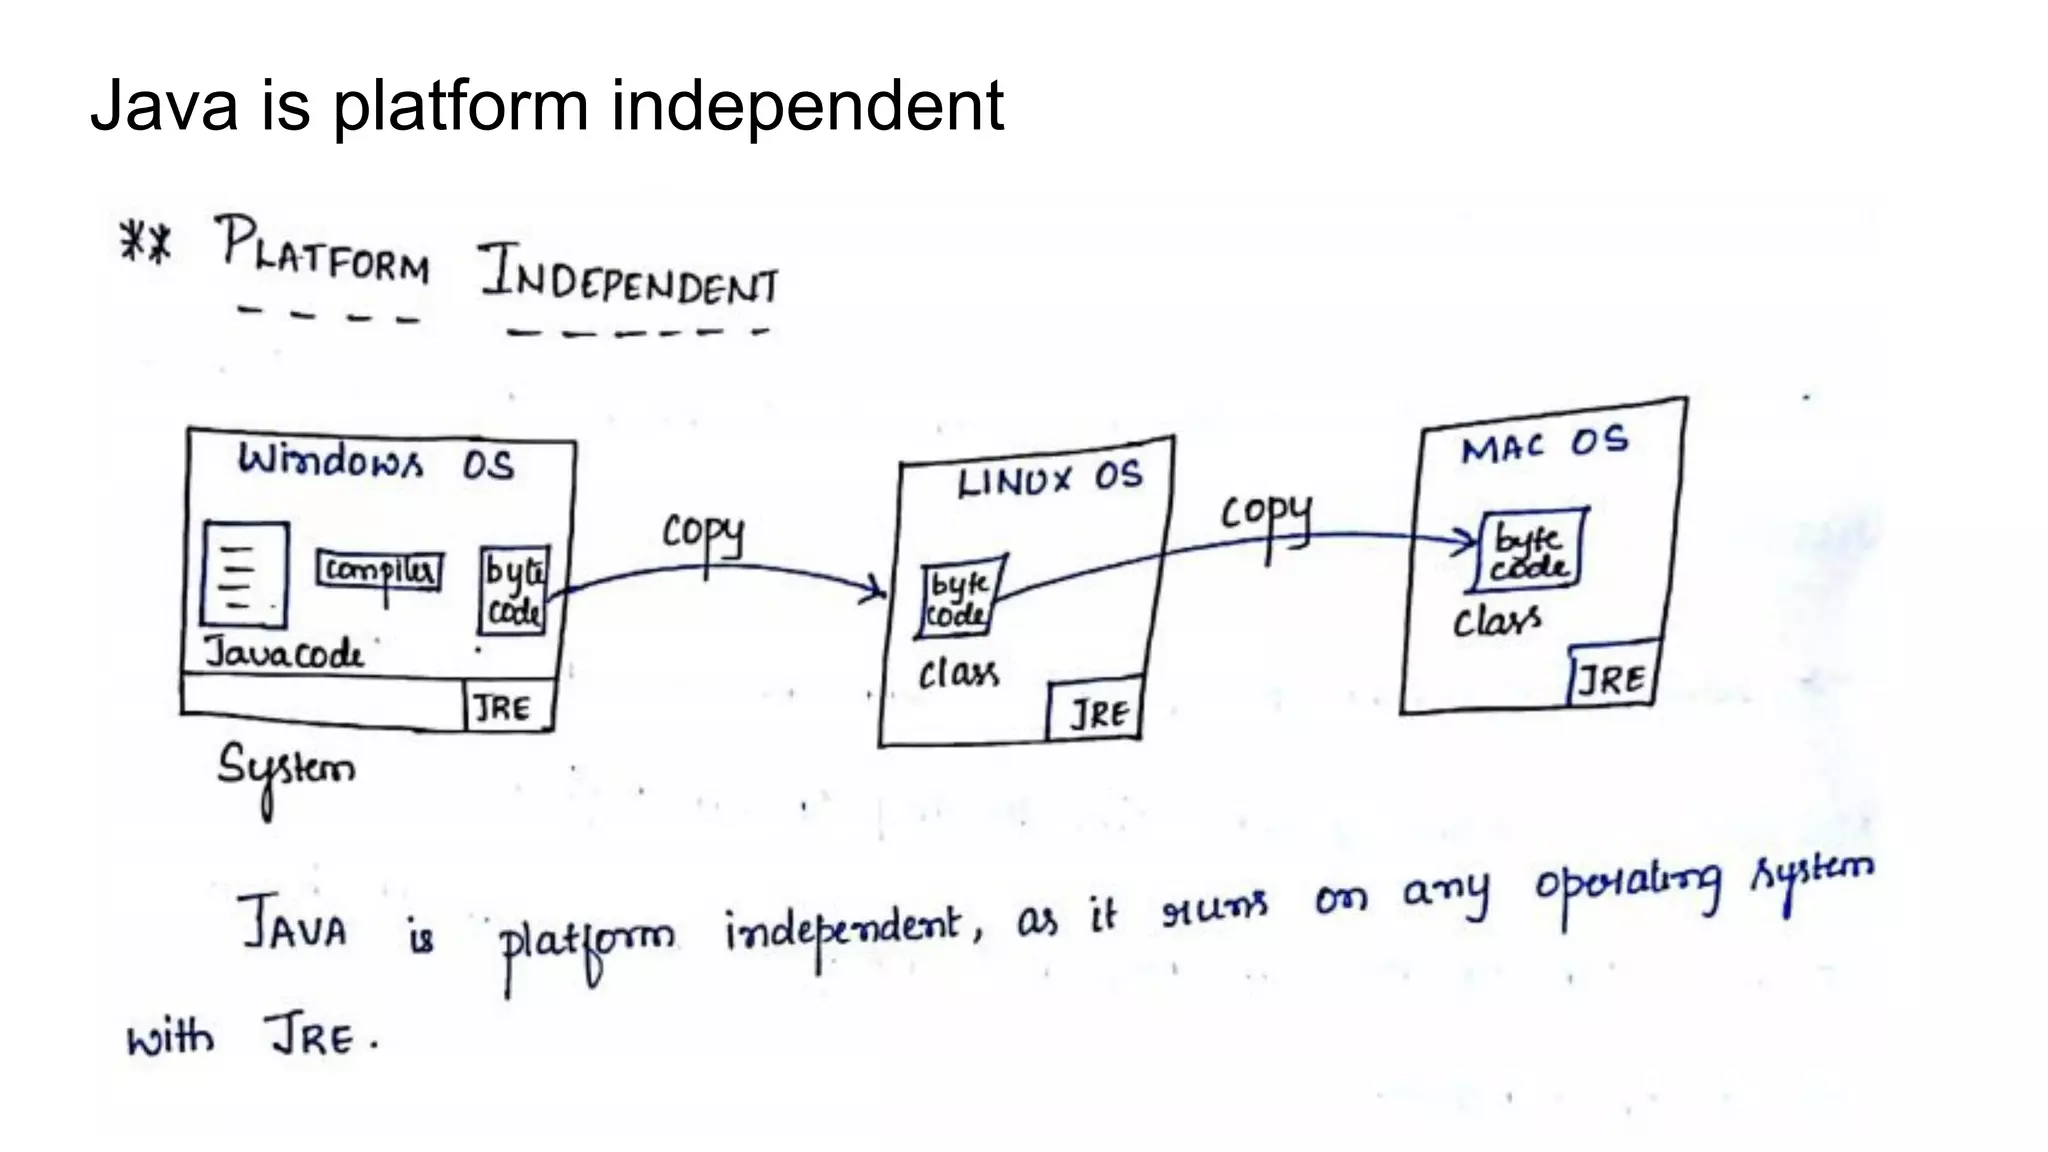 Java is platform independent
** PLATFORM INDEPENDENT
Windows OS
compiler
byte
code
Javacode
JRE
System
copy
LINUX OS
byte
code
class
JRE
copy
MAC OS
byte
code
class
JRE
JAVA is platform independent, as it runs on any operating system
with JRE.